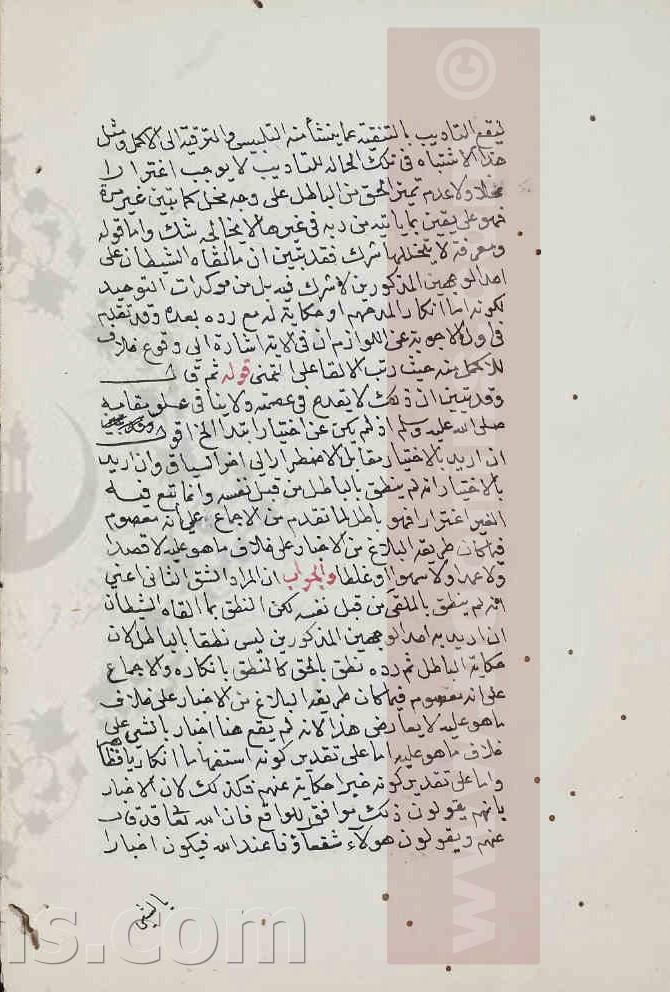 ليقع التاديب بالتنقية عما ينشأ منه التلبيس والترقية الى الاكمل ومثل
هذا الاشتباه فى تلك الحالة للتاديب لا يوجب اغترارا
مخلا ولا عدم تميز الحق من الباطل على وجه مخل كما تبين غير مرة
فهو على يقين بما ياتيه من ربه فى غيرها لا يخالجه شك واما قوله
ومعرفة لا يتخللها شرك فقد تبين ان ما القاه الشيطان على
احد الوجهين المذكورين لا شرك فيه بل من موكدات التوحيد
لكونه اما انكار المدحهم او حكاية له مع رده بعده وقد تقدم
فى الاجوبة عن اللوازم ان فى الاية اشارة الى وقوع خلاف
للاكمل منه حيث رتب الالقا على التمنى قوله ثم قال
وقد تبين ان ذلك لا يقدح فى عصمته ولا ينافى علو مقامه
صلى الله عليه وسلم اذ لم يكن عن اختيار ابتدا الخ اقول
ان اريد بالاختيار مقابل الاضطرار الى اخر السياق وان اريد
بالاختيار انه لم ينطق بالباطل من قبل نفسه وانما تبع فيه
الغير اغترارا فهو باطل لما تقدم من الاجماع على انه معصوم
فيما كان طريقه البلاغ من الاخبار على خلاف ما هو عليه لا قصدا
ولا عمدا ولا سهوا او غلطا والجواب ان المراد الشق الثانى اعني
انه لم ينطق بالملقى من قبل نفسه لكن النطق بما القاه الشيطان
ان اريد به احد الوجهين المذكورين ليس نطقا بالباطل لان
حكاية الباطل ثم رده نطق بالحق كالنطق بانكاره والاجماع
على انه معصوم فيما كان طريقه البلاغ من الاخبار على خلاف
ما هو عليه لا يعارض هذا لانه لم يقع هنا اخبار بالشى على
خلاف ما هو عليه اما على تقدير كونه استفهاما انكاريا فظاهر
واما على تقدير كونه خبرا حكاية عنهم فكذلك لان الاخبار
بانهم يقولون ذلك موافق للواقع فان الله تعالى قد قال
عنهم ويقولون هولاء شفعاؤنا عند الله فيكون اخبارا
بالشى
©
www.
ms.com